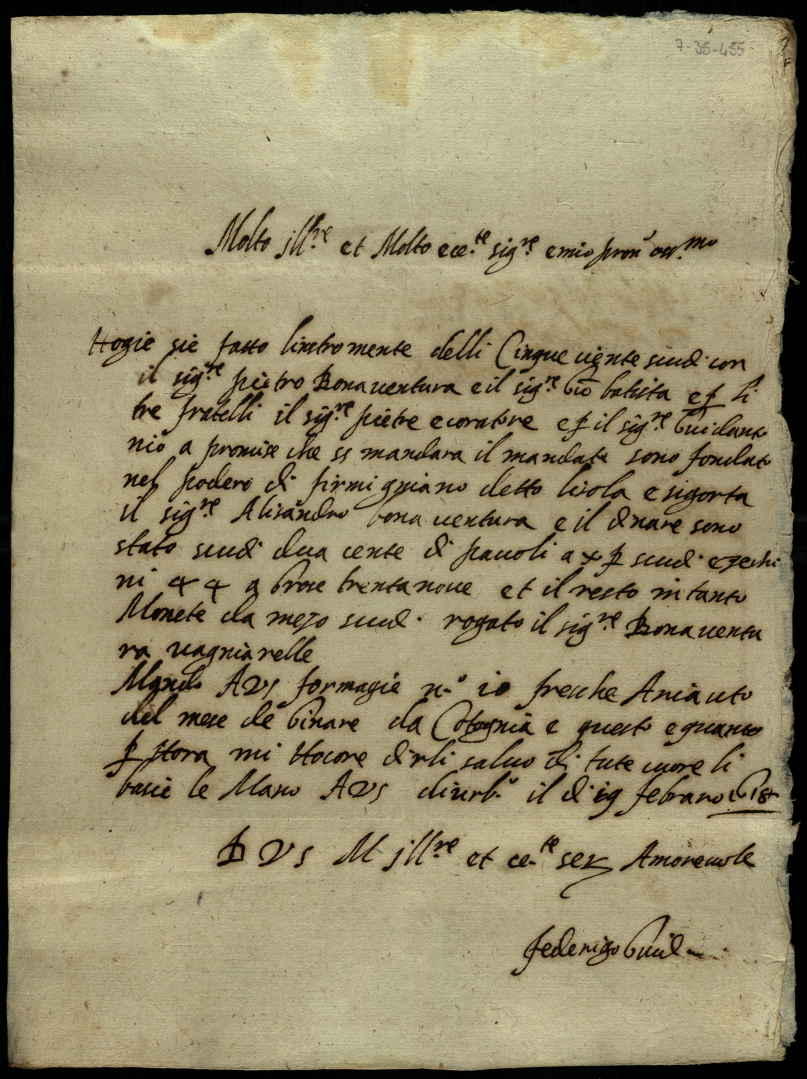 7-35-455
Molto Ill.re et Molto ece.te sig.re e mio pron.' oss.mo
Hogie sie fatto linstromente delli Cinque cente scudi con
il sig.re pietro Bonaventura e il sig.re Gio batista e p li
tre fratelli il sig.re pietre e coratore e p il sig.re Guidanto
nio a promise che si mandara il mandate sono fondate
nel podere di firmigniano detto lisola e sigorta
il sig.re Alisandro bonaventura e il dinare sono
stato scudi dua cente di pavoli a x p scudi e zechi
ni trentanove et il resto in tante
Monete da mezo scud. rogato il sig.re Bonaventu
ra vagniarelle
Mando A VS formagie n.o 10 fresche A
del mese de Ginare da Cotognia e questo e quanto
p Hora mi Hocore dirli salvo di tute cuore li
bacie le Mano A VS d'urb.o il di 19 febraro 1618
D VS M Ill.re et ce.te ser Amorevole
federigo Guid